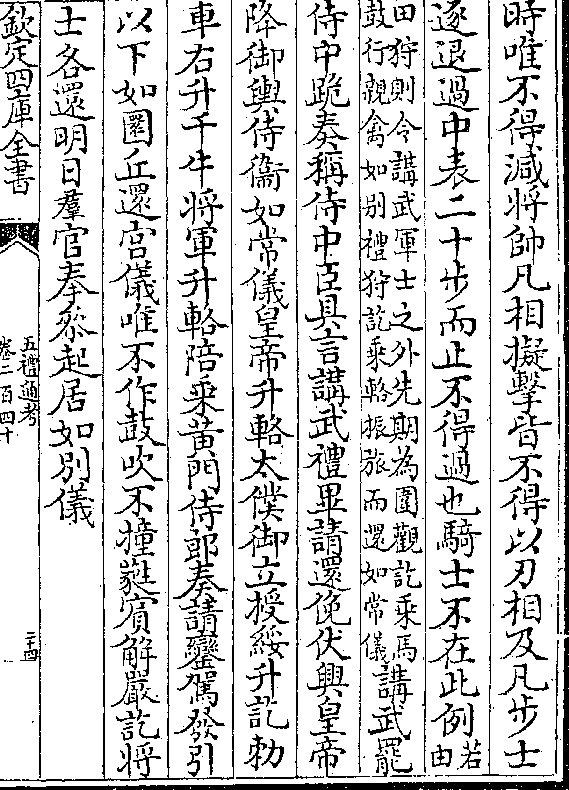 時唯不得減將帥凡相擬擊皆不得以刃相及凡步士
逐退過中表二十步而止不得過也騎士不在此例若由
田狩則令講武軍士之外先期為圍觀訖乘馬
鼓行親禽如别禮狩訖乘輅振旅而還如常儀
講武罷
侍中跪奏稱侍中臣具言講武禮畢請還俛伏興皇帝
降御輿侍衞如常儀皇帝升輅太僕御立授綏升訖勅
車右升千牛將軍升輅陪乘黄門侍郎奏請鑾駕發引
以下如圜丘還宫儀唯不作鼓吹不撞蕤賔解嚴訖將
士各還明日羣官奉參起居如别儀
欽定四庫全書
五禮通考
卷二百四十
二十四